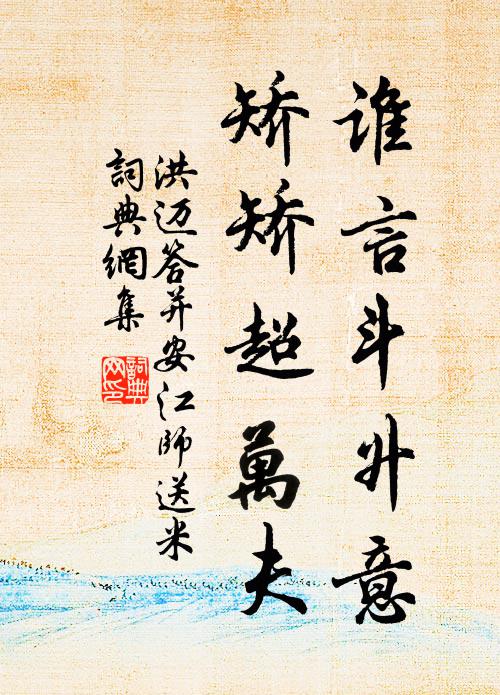 谁言斗升意
矫矫超萬夫
洪迈答并安江师送米
詞典網集
詞典网印